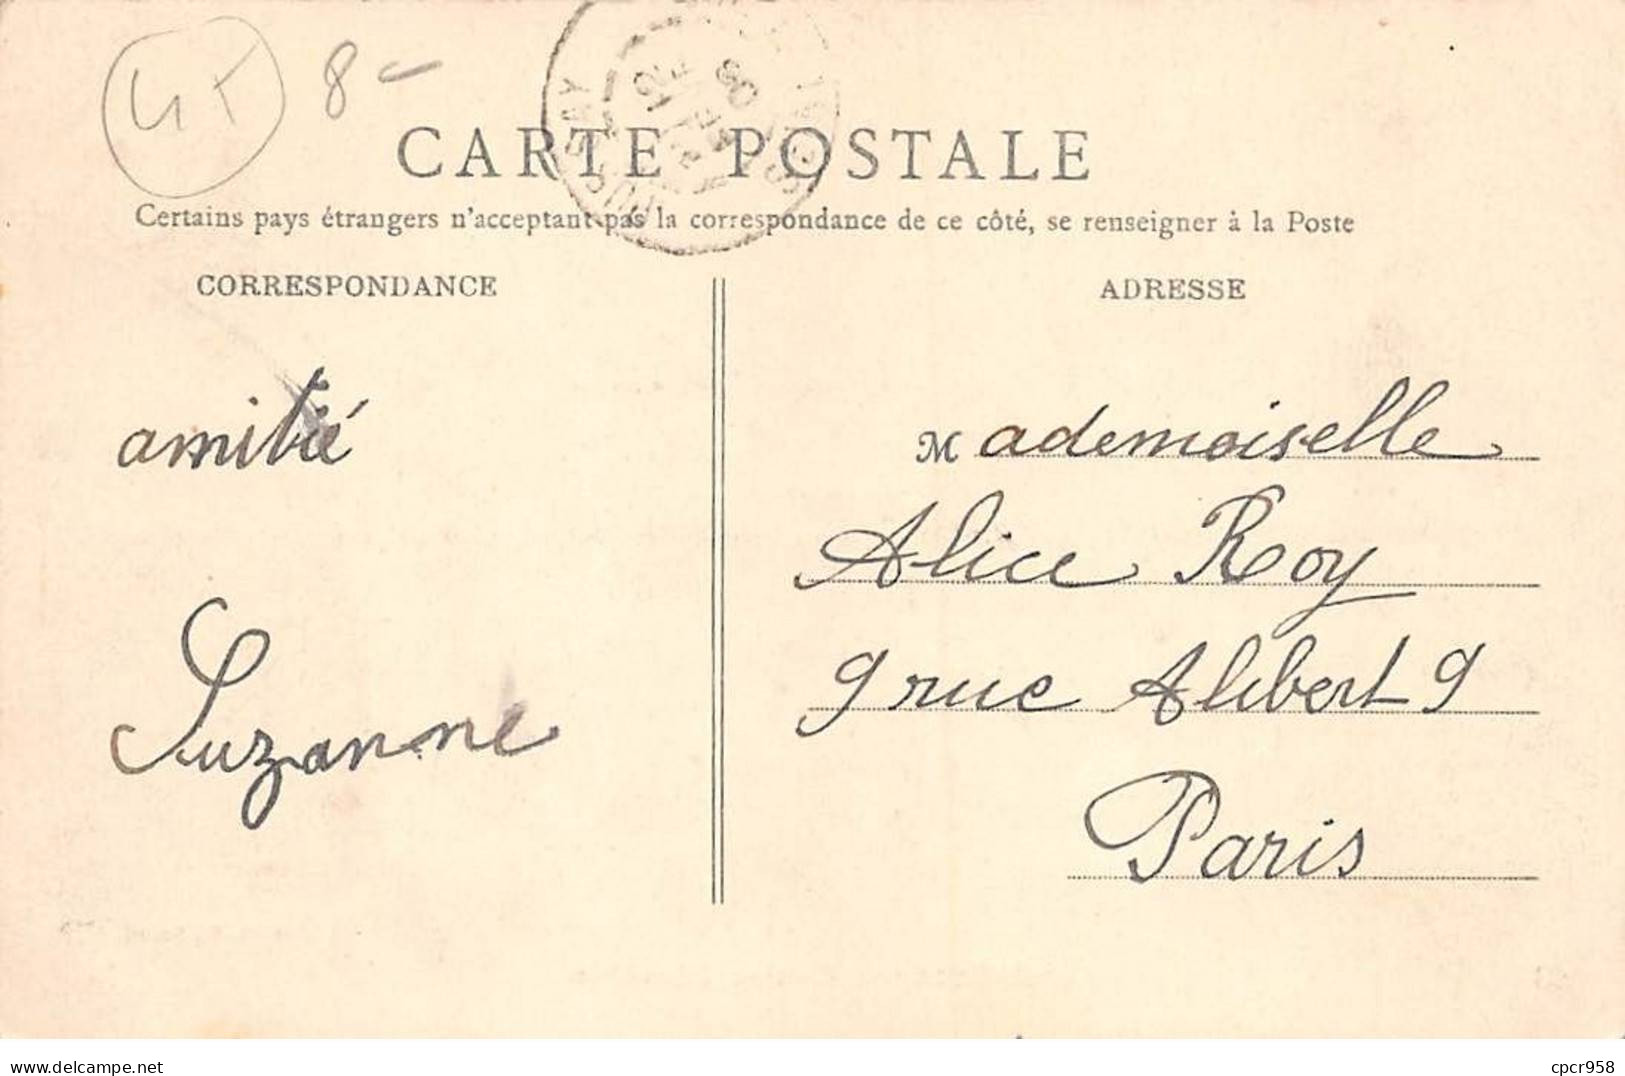 8 -
CARTE POSTALE
Certains pays étrangers n'acceptant pas la correspondance de ce côté, se renseigner à la Poste
CORRESPONDANCE
amitié
Suzanne
ADRESSE
Mademoiselle
Alice Roy
9 rue Alibert 9
Paris
cpcr958